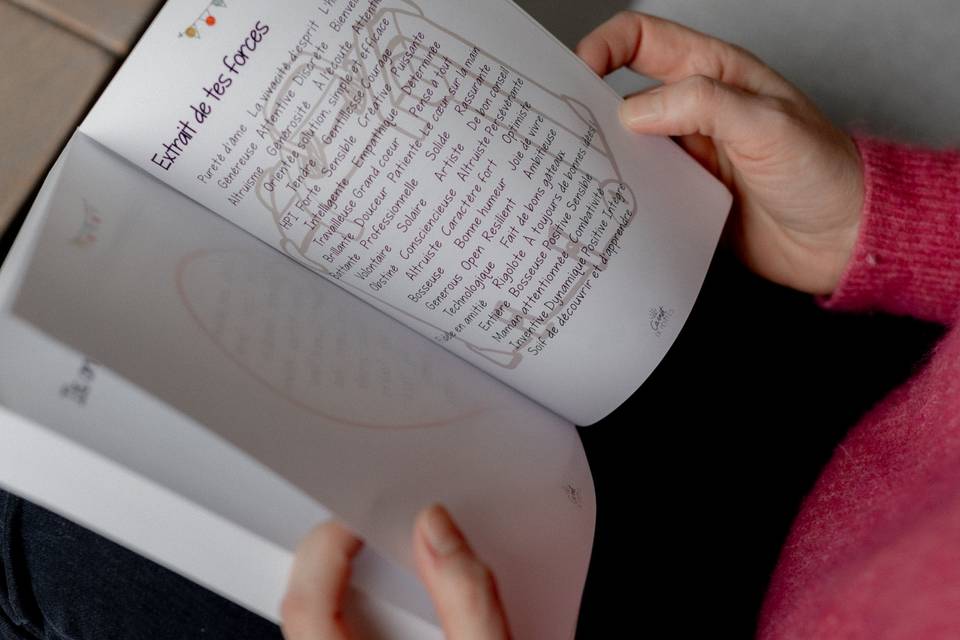 Extrait de tes forces
Pureté d'âme La vivacité d'esprit
Généreuse Attentive Discrète
Altruisme Générosité A l'écoute
Orientée solution, simple et efficace
Tendre Gentillesse Courage
HPI Forte Sensible Créative Puissante
Intelligente Empathique Déterminée
Travailleuse Grand coeur Pense à tout
Brillante Douceur Patiente Le cœur sur la main
Battante Professionnelle Solide Rassurante
Volontaire Solaire Artiste De bon conseil
Obstiné Consciencieuse Altruiste Persévérante
Altruiste Caractère fort Optimiste
Bosseuse Bonne humeur Joie de vivre
Generous Open Resilient Ambitieuse
Technologique Fait de bons gateaux
en amitié Rigolote A toujours de bonnes idées
Entière Bosseuse Positive Sensible
Maman attentionnée Combativité
Inventive Dynamique Positive Intègre
Soif de découvrir et d'apprendre
Carnet